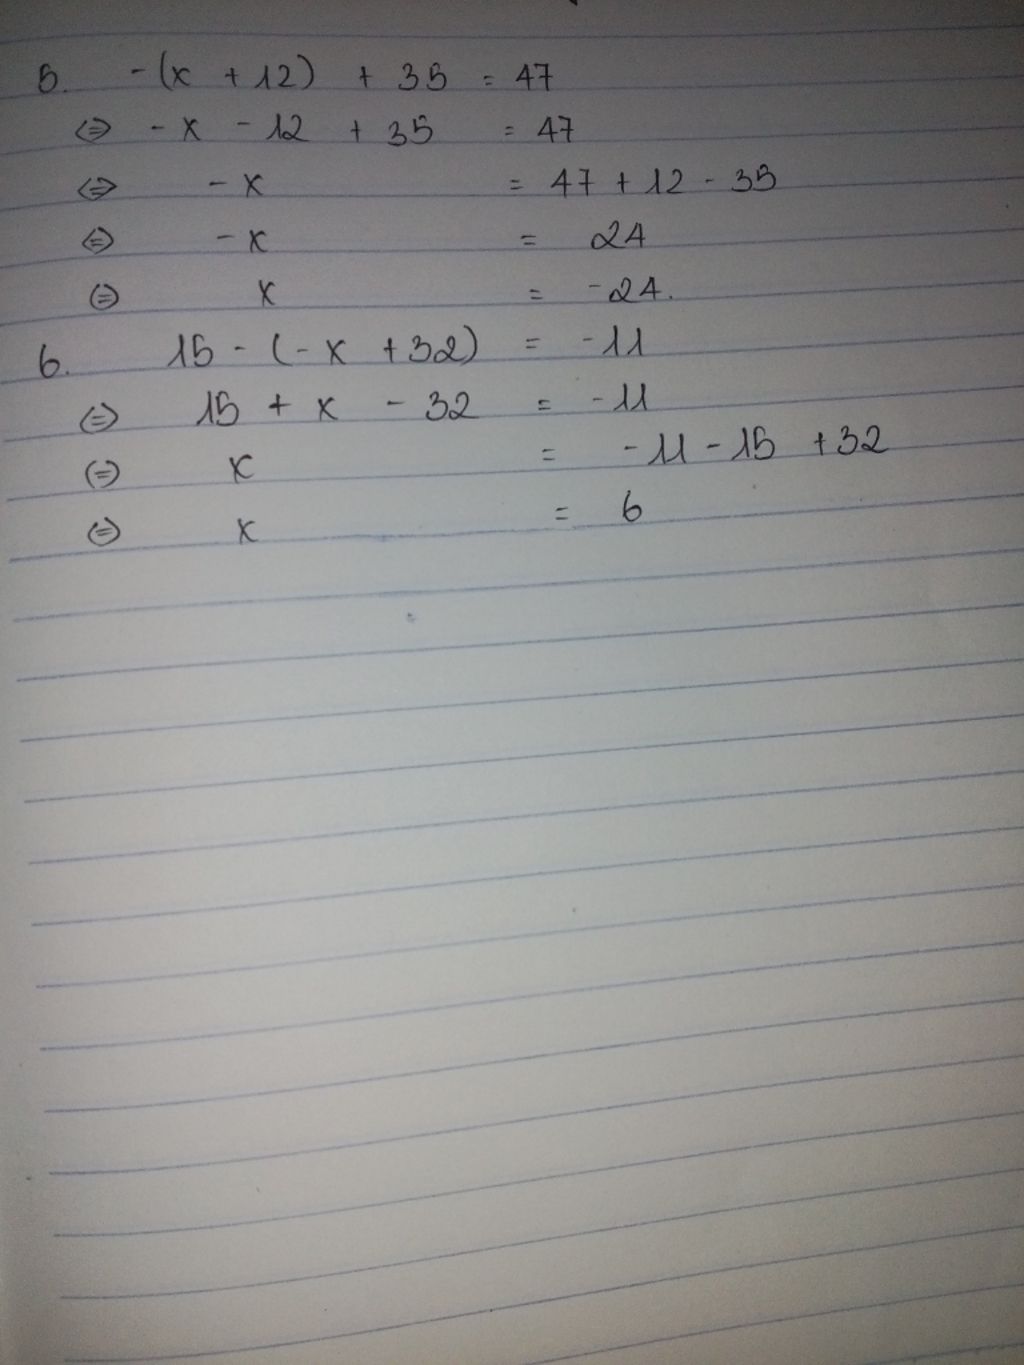 5. -(x + 12) + 35 = 47
⇔ -x - 12 + 35 = 47
⇔ -x = 47 + 12 - 35
⇔ -x = 24
⇔ x = -24.
6. 15 - (-x + 32) = -11
⇔ 15 + x - 32 = -11
⇔ x = -11 - 15 + 32
⇔ x = 6